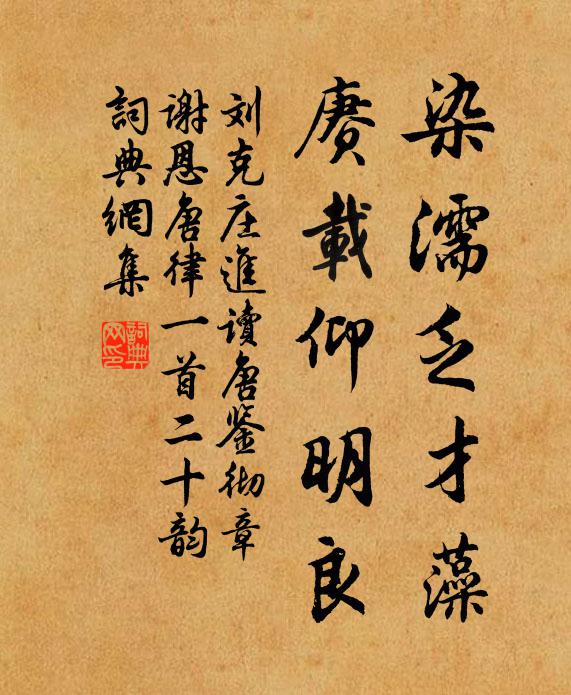 染濡乏才藻
赓載仰明良
刘克庄進讀唐鉴彻章
謝恩唐律一首二十韵
詞典網集
詞典网印